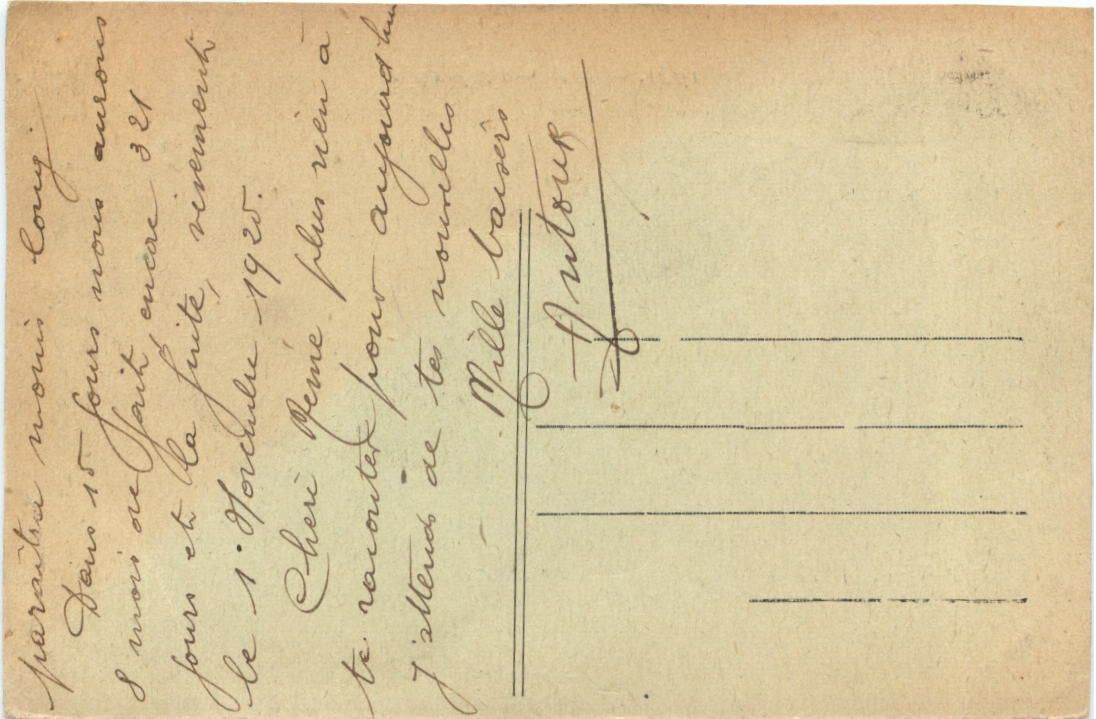 paraître moins long
Dans 15 jours nous aurons
8 mois de fait, encore 321
jours et la fuite, vivement
le 1. Novembre 1920.
Chéri René plus rien à
te raconter pour aujourd'hui
J'attends de tes nouvelles
Mille baisers